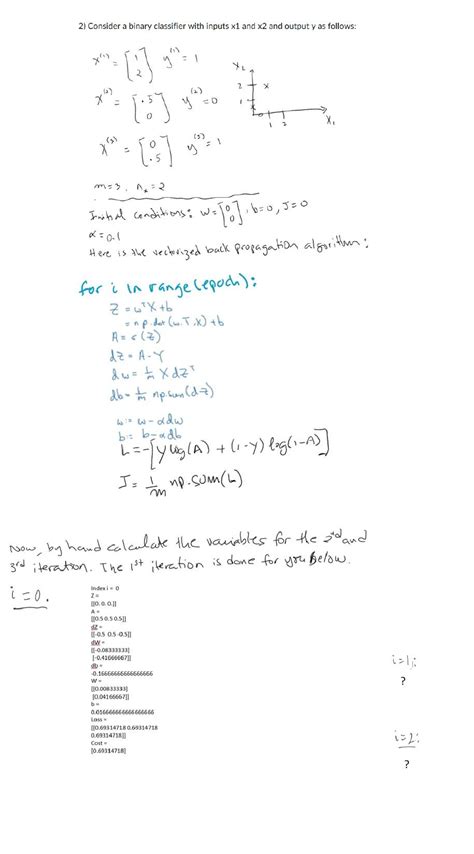 2) Consider a binary classifier with inputs x1 and x2 and output y as follows:
x⁽¹⁾ = [1 2] y⁽¹⁾ = 1
x⁽²⁾ = [.5 0] y⁽²⁾ = 0
x⁽³⁾ = [0 .5] y⁽³⁾ = 1
x₂
2 x
1
1 2 x₁
m=3, nₓ=2
Initial conditions: w=[0 0], b=0, J=0
α=0.1
Here is the vectorized back propagation algorithm:
for i in range(epoch):
Z = wᵀX+b
= np.dot(w.T,x)+b
A = σ(Z)
dZ = A-Y
dw = 1/m X dZᵀ
db = 1/m np.sum(dZ)
w:= w-αdw
b:= b-αdb
L=-[Y log(A) + (1-Y) log(1-A)]
J = 1/m np.sum(L)
Now, by hand calculate the variables for the 2nd and
3rd iteration. The 1st iteration is done for you below.
i=0.
Index i = 0
Z =
[[0. 0. 0.]]
A =
[[0.5 0.5 0.5]]
dZ =
[[-0.5 0.5 -0.5]]
dW =
[[-0.08333333]
[-0.41666667]]
db =
-0.16666666666666666
W =
[[0.00833333]
[0.04166667]]
b =
0.016666666666666666
Loss =
[[0.69314718 0.69314718
0.69314718]]
Cost =
[0.69314718]
i=1:
?
i=2:
?